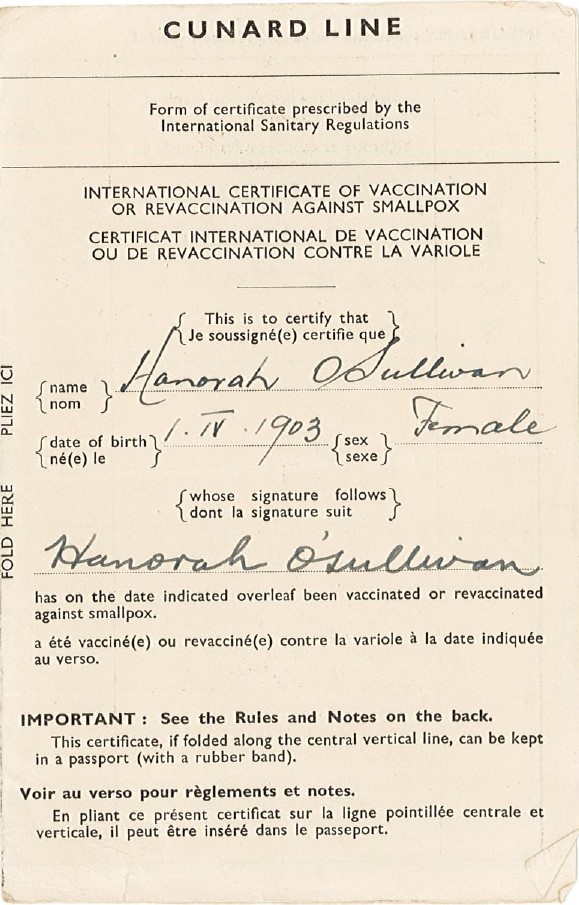 CUNARD LINE
Form of certificate prescribed by the
International Sanitary Regulations
INTERNATIONAL CERTIFICATE OF VACCINATION
OR REVACCINATION AGAINST SMALLPOX
CERTIFICAT INTERNATIONAL DE VACCINATION
OU DE REVACCINATION CONTRE LA VARIOLE
This is to certify that
Je soussigné(e) certifie que
name
nom
Hanorah O'Sullivan
date of birth
né(e) le
1. IV. 1903
sex
sexe
Female
whose signature follows
dont la signature suit
Hanorah O'Sullivan
has on the date indicated overleaf been vaccinated or revaccinated
against smallpox.
a été vacciné(e) ou revacciné(e) contre la variole à la date indiquée
au verso.
IMPORTANT : See the Rules and Notes on the back.
This certificate, if folded along the central vertical line, can be kept
in a passport (with a rubber band).
Voir au verso pour règlements et notes.
En pliant ce présent certificat sur la ligne pointillée centrale et
verticale, il peut être inséré dans le passeport.
FOLD HERE PLIEZ ICI